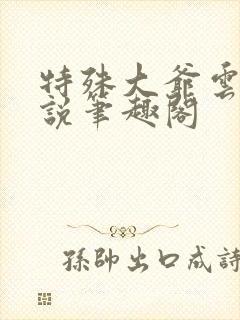 特殊大爺雲
說筆趣閣
孫帥出口成詩